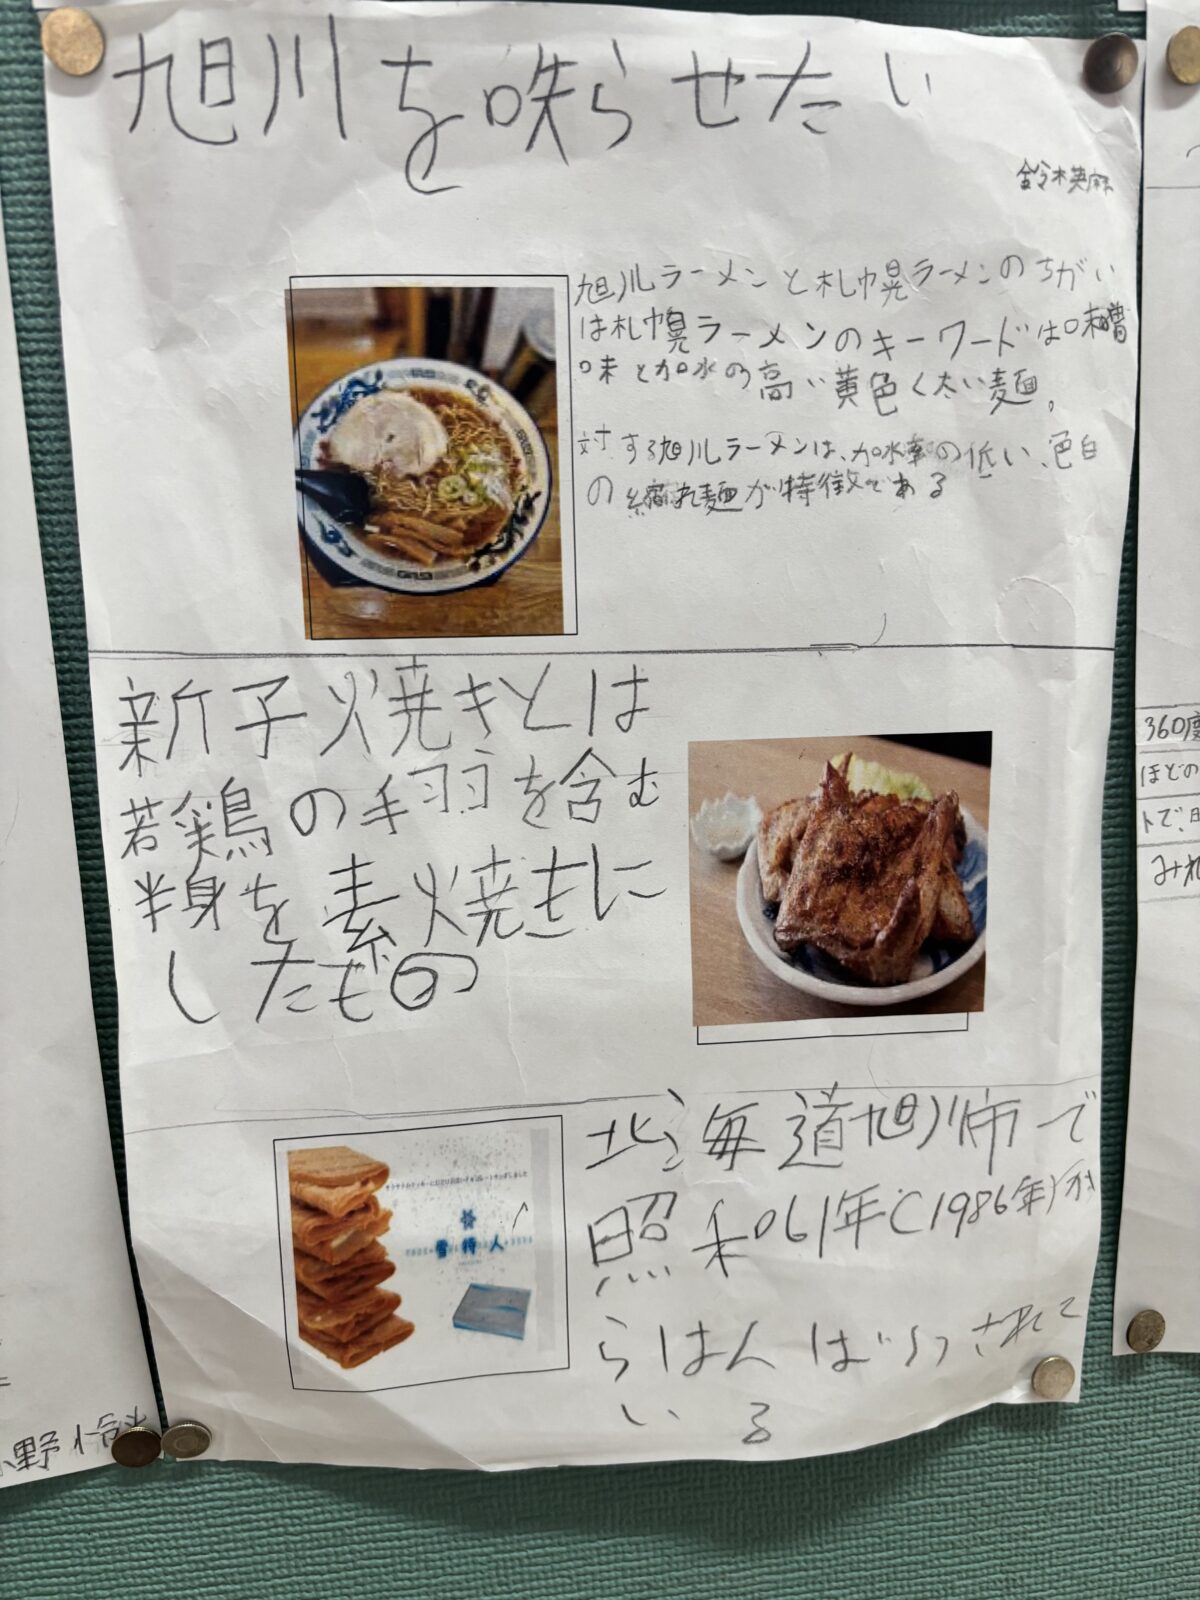 旭川を味らせたい
鈴木英麻
旭川ラーメンと札幌ラーメンのちがい
は札幌ラーメンのキーワードは味噌
味と加水の高い黄色く太い麺。
対する旭川ラーメンは、加水率の低い、色白
の縮れ麺が特徴である
新子焼きとは
若鶏の手羽を含む
半身を素焼きに
したもの
サクサクのクッキーに
雪待人
北海道旭川市で
照和061年(1986年)か
らはんばいされて
いる
360度
ほどの
トで、日
みれ
小野